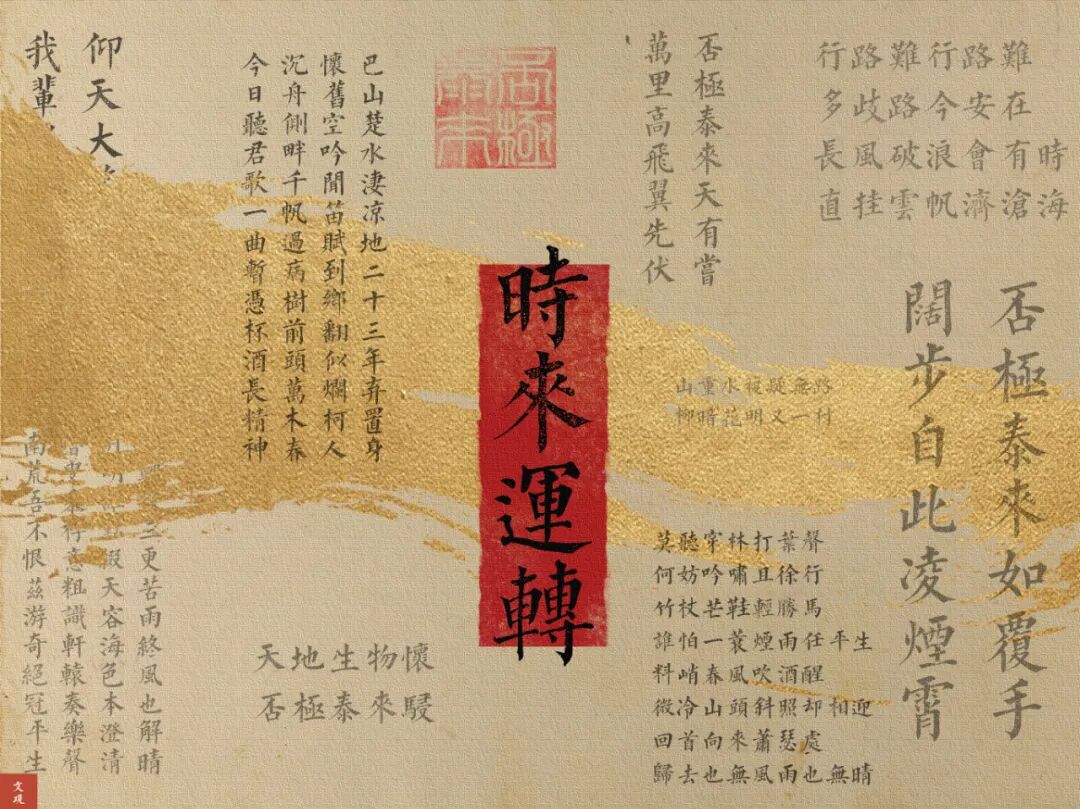 行路難行路難
多歧路今安在
長風破浪會有時
直挂雲帆濟滄海
否極泰來如覆手
闊步自此凌煙霄
否極泰來天有嘗
萬里高飛翼先伏
山重水複疑無路
柳暗花明又一村
莫聽穿林打葉聲
何妨吟嘯且徐行
竹杖芒鞋輕勝馬
誰怕一蓑煙雨任平生
料峭春風吹酒醒
微冷山頭斜照却相迎
回首向來蕭瑟處
歸去也無風雨也無晴
時來運轉
否極泰來
巴山楚水淒凉地二十三年弃置身
懷舊空吟聞笛賦到鄉翻似爛柯人
沉舟側畔千帆過病樹前頭萬木春
今日聽君歌一曲暫憑杯酒長精神
天地生物懷
否極泰來駸
仰天大
我輩
三更苦雨終風也解晴
天容海色本澄清
粗識軒轅奏樂聲
南荒吾不恨茲游奇絕冠平生
文現